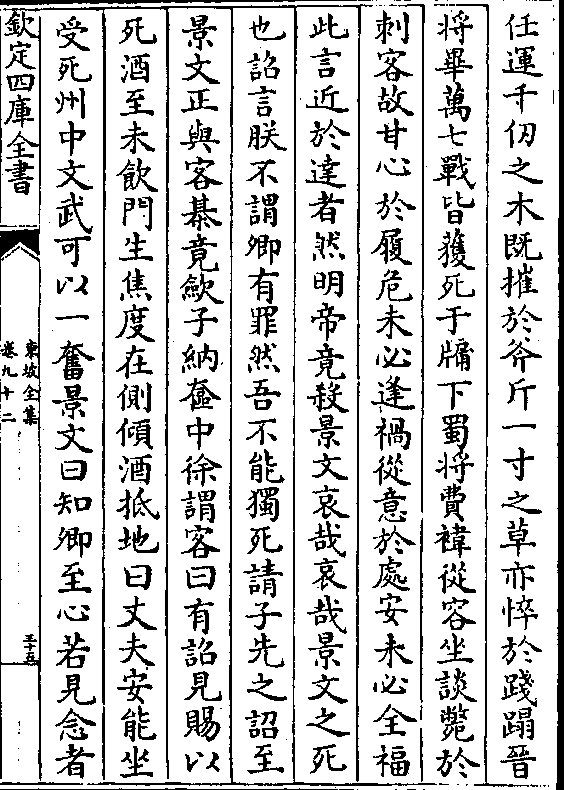 任運千仞之木既摧於斧斤一寸之草亦悴於踐蹋晉
將畢萬七戰皆獲死于牖下蜀將費禕從容坐談斃於
刺客故甘心於履危未必逢禍從意於處安未必全福
此言近於達者然明帝竟殺景文哀哉哀哉景文之死
也詔言朕不謂卿有罪然吾不能獨死請子先之詔至
景文正與客棊竟斂子納奩中徐謂客曰有詔見賜以
死酒至未飲門生焦度在側傾酒抵地曰丈夫安能坐
受死州中文武可以一奮景文曰知卿至心若見念者
欽定四庫全書
東坡全集
卷九十二
三十五